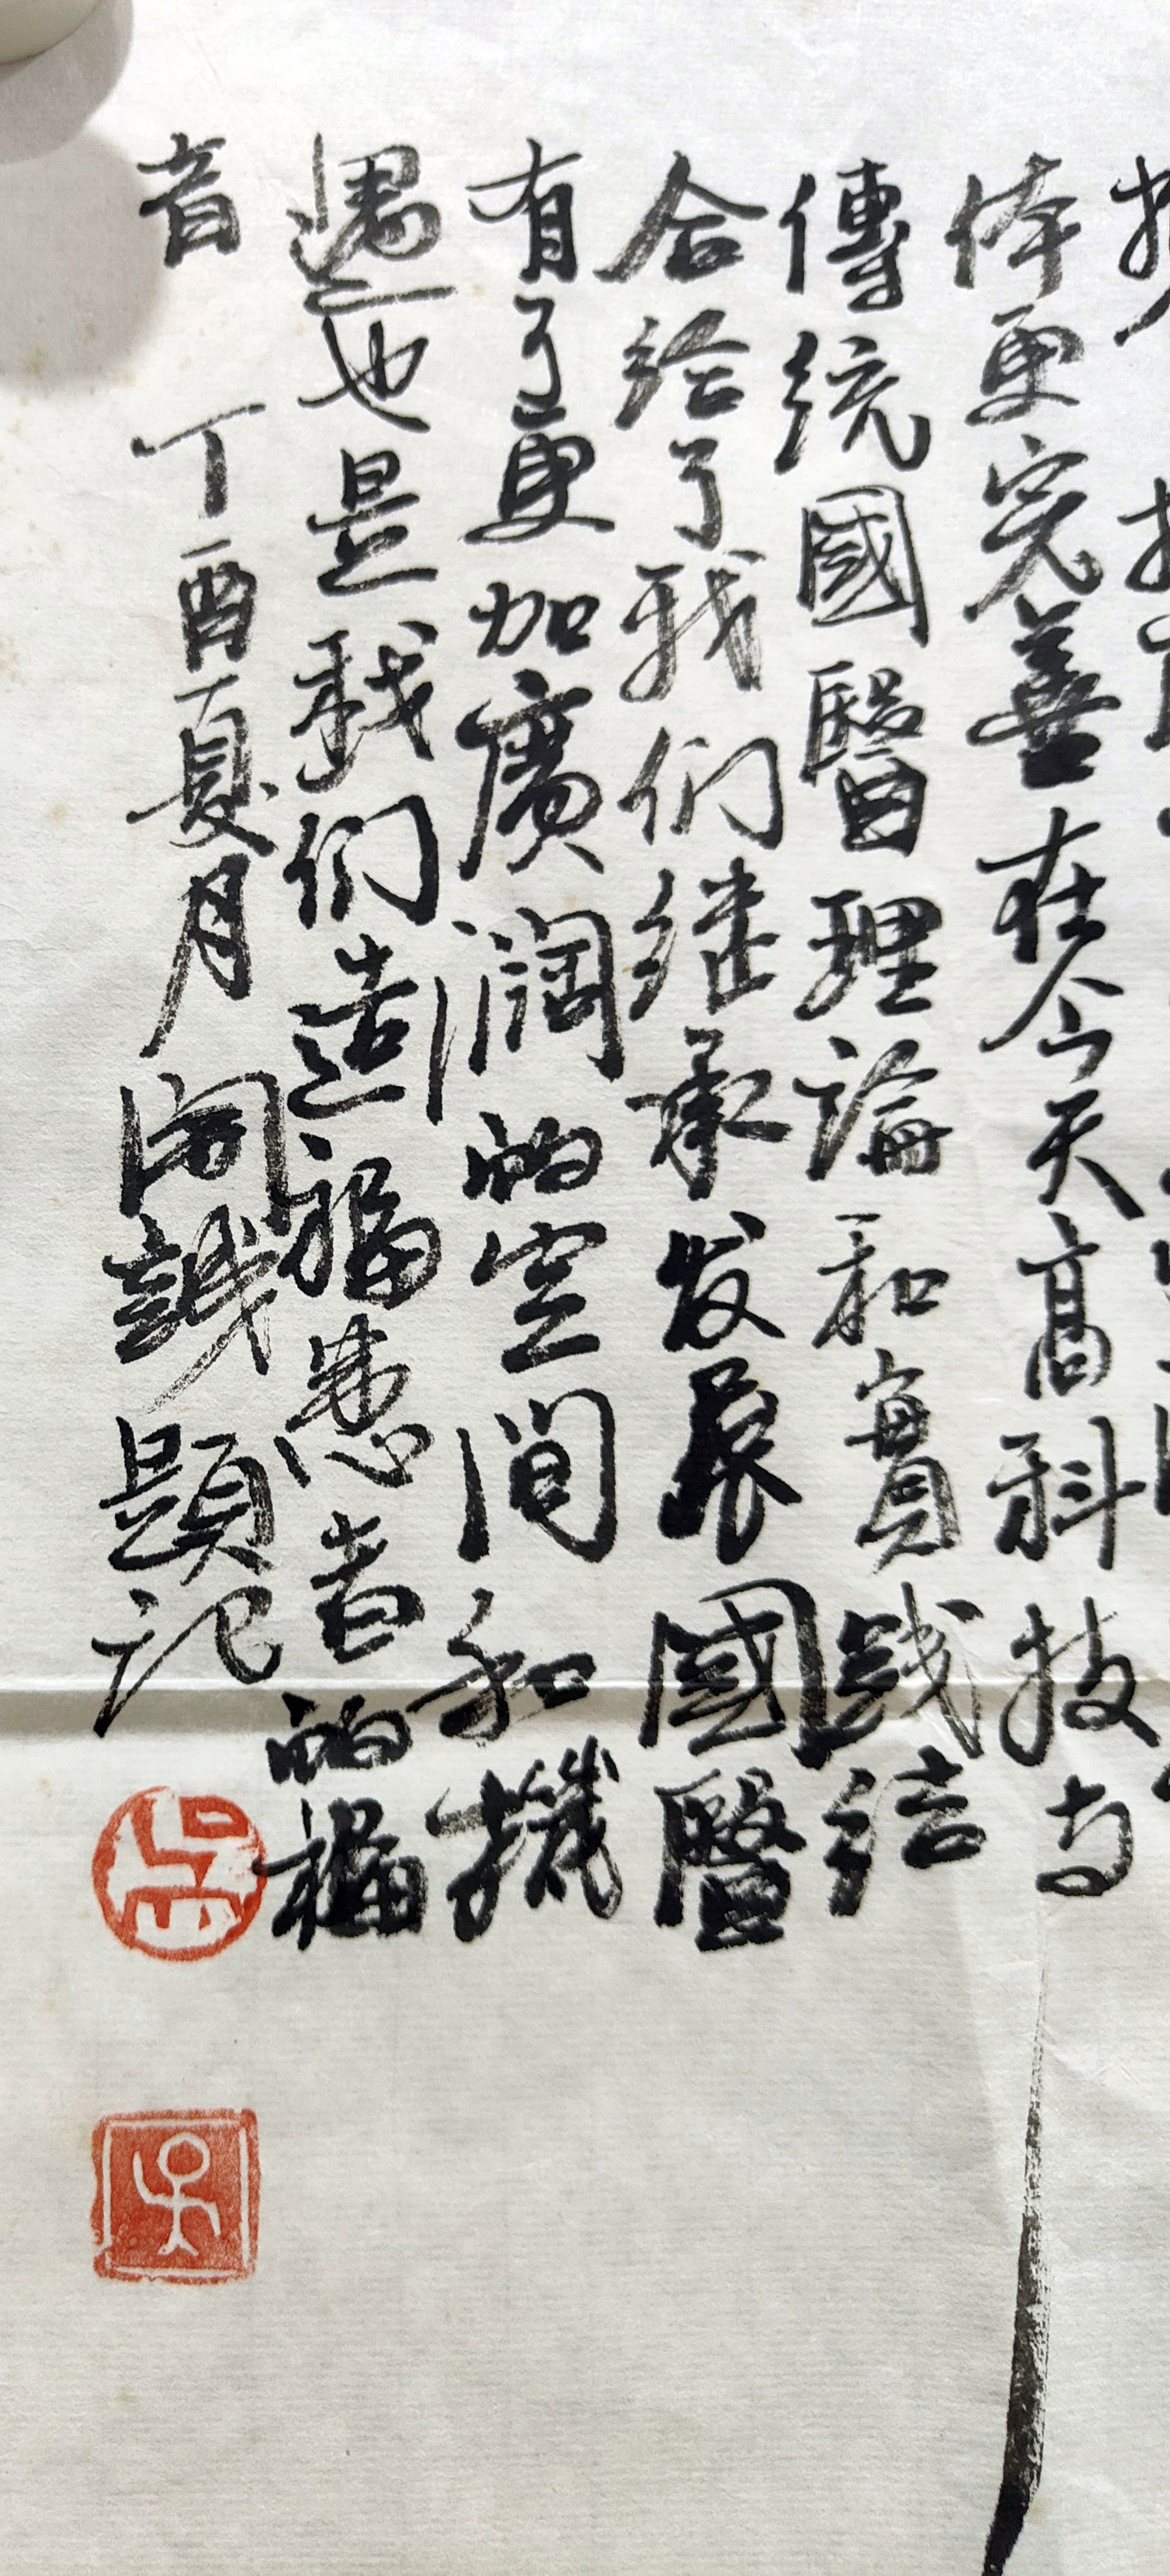 体更完善在今天高科技与
傳統國醫理論和實践结
合给了我们继承发展國醫
有了更加廣濶的空間和機
遇也是我们造福患者的福
音 丁酉夏月 誠題记